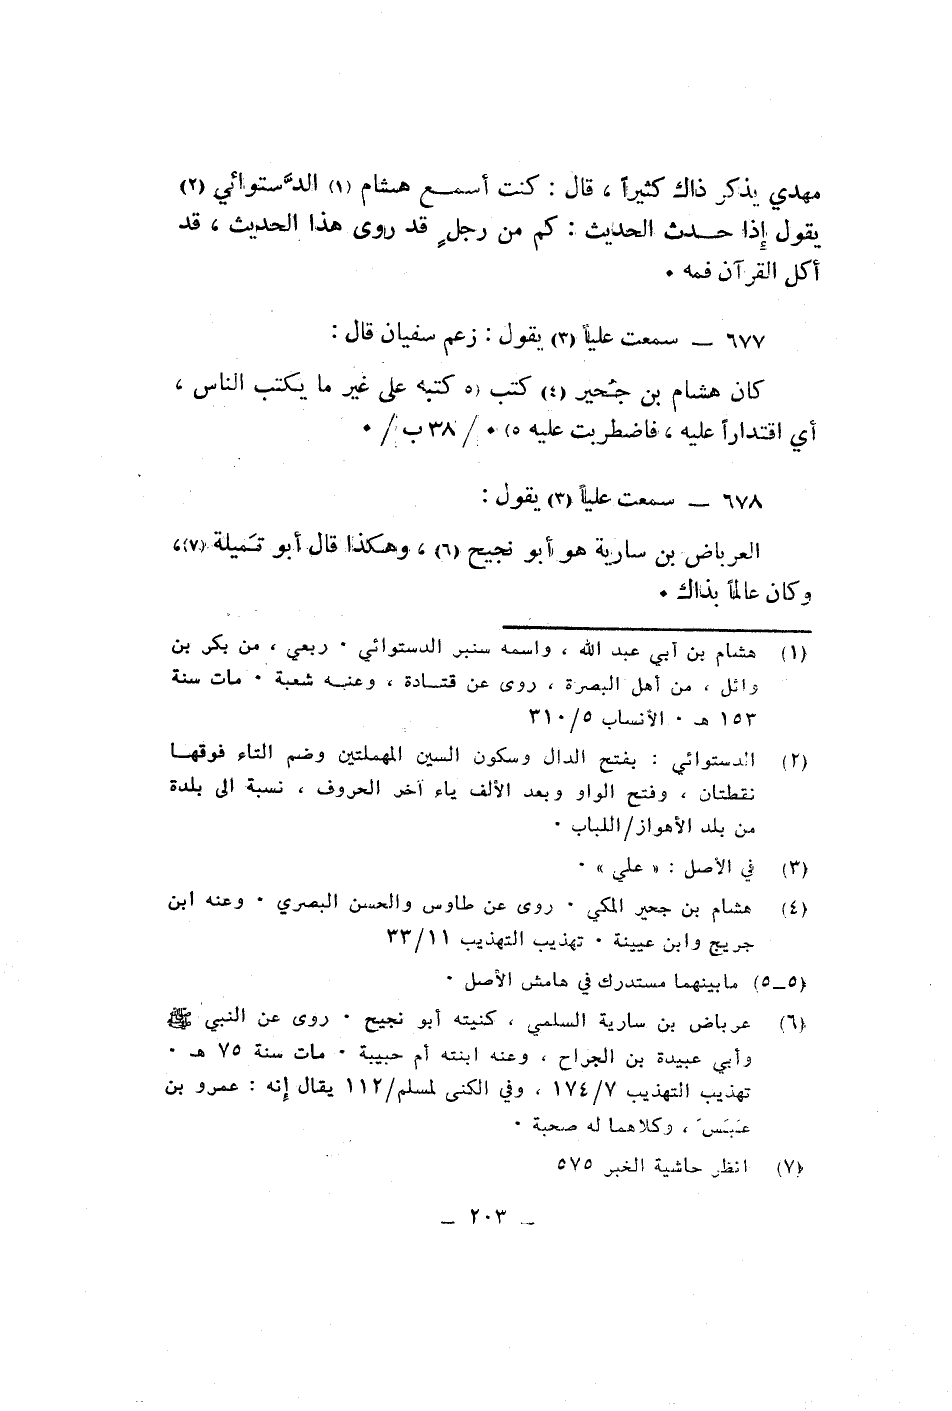 مهدي يذكر ذاك كثيراً ، قال : كنت أسمع هشام (١) الدَّستوائي (٢)
يقول إذا حدث الحديث : كم من رجلٍ قد روى هذا الحديث ، قد
أكل القرآن فمه ٠
٦٧٧ ــ سمعت علياً (٣) يقول : زعم سفيان قال :
كان هشام بن حُجير (٤) كتب (٥ كتبه على غير ما يكتب الناس ،
أي اقتداراً عليه ، فاضطربت عليه ٥) ٠ /٣٨ ب/ ٠
٦٧٨ ــ سمعت علياً (٣) يقول :
العرباض بن سارية هو أبو نجيح (٦) ، وهكذا قال أبو تُميلة (٧) ،
وكان عالماً بذاك ٠
(١) هشام بن أبي عبد الله ، واسمه سنبر الدستوائي ٠ ربعي ، من بكر بن
وائل ، من أهل البصرة ، روى عن قتادة ، وعنه شعبة ٠ مات سنة
١٥٣ هـ ٠ الأنساب ٥/٣١٠
(٢) الدستوائي : بفتح الدال وسكون السين المهملتين وضم التاء فوقها
نقطتان ، وفتح الواو وبعد الألف ياء آخر الحروف ، نسبة الى بلدة
من بلد الأهواز/اللباب ٠
(٣) في الأصل : « علي » ٠
(٤) هشام بن حجير المكي ٠ روى عن طاوس والحسن البصري ٠ وعنه ابن
جريج وابن عيينة ٠ تهذيب التهذيب ٣٣/١١
(٥ــ٥) مابينهما مستدرك في هامش الأصل ٠
(٦) عرباض بن سارية السلمي ، كنيته أبو نجيح ٠ روى عن النبي ﷺ
وأبي عبيدة بن الجراح ، وعنه ابنته أم حبيبة ٠ مات سنة ٧٥ هـ ٠
تهذيب التهذيب ١٧٤/٧ ، وفي الكنى لمسلم/١١٢ يقال إنه : عمرو بن
عَبَسَ ، وكلاهما له صحبة ٠
(٧) انظر حاشية الخبر ٥٧٥
ــ ٢٠٣ ــ